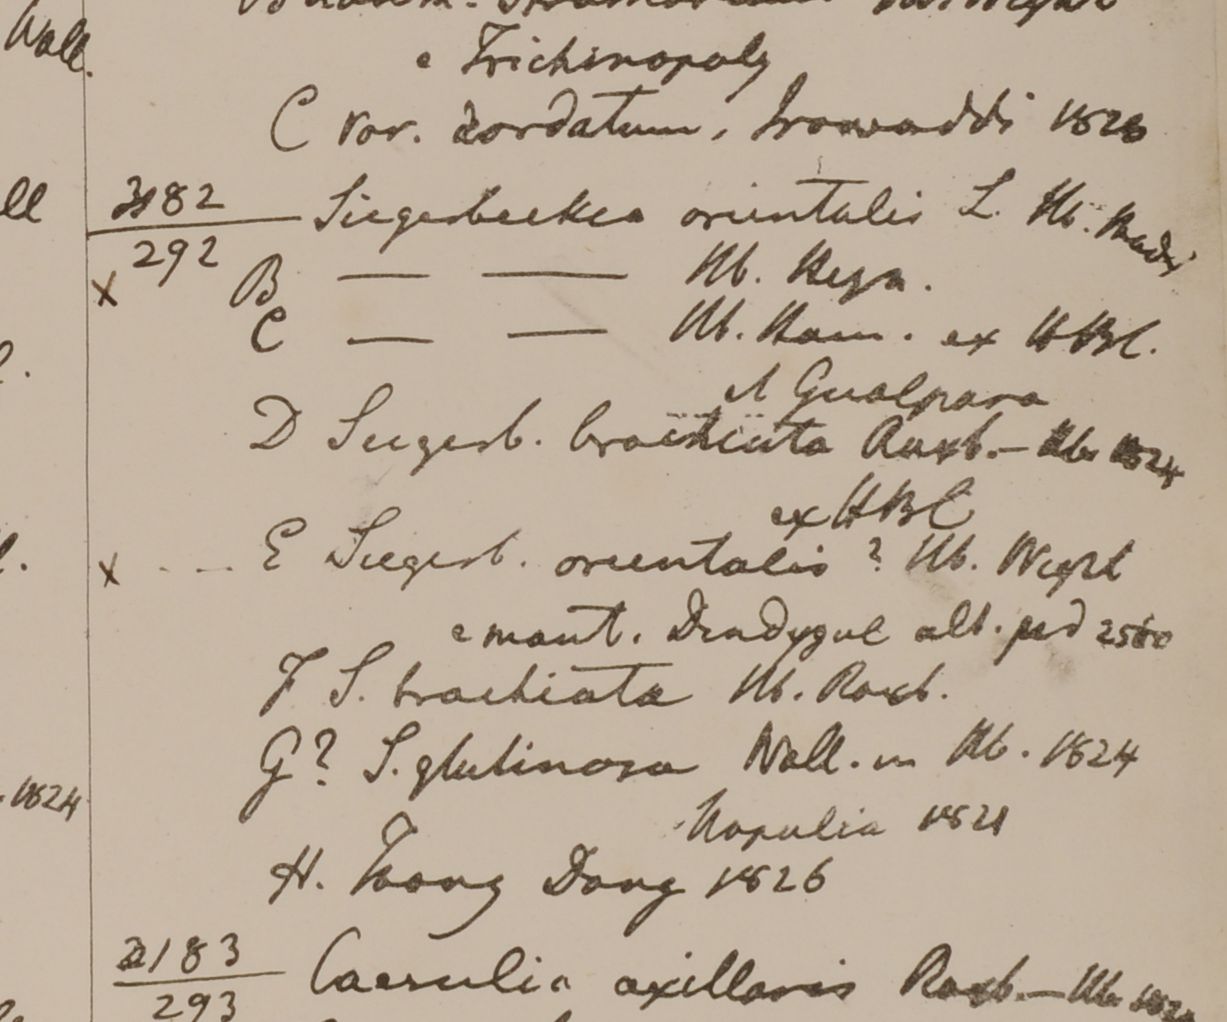 Wall.
e Trichinopoly
C var. cordatum, Irawaddi 1826
3182 Siegesbeckea orientalis L. Hb. Madr
292
x B — — Hb. Heyn.
C — — Hb. Ham. ex HBC.
d Gualpara
D Siegesb. brachiata Roxb. — Hb. 1824
ex HBC
x E Siegesb. orientalis? Hb. Wight
e mont. Dindygul alt. ped 2500
F S. brachiata Hb. Roxb.
G? S. glutinosa Wall. in Hb. 1824
1824
Napalia 1821
H. Taong Dong 1826
2183 Caesulia axillaris Roxb. — Hb.
293